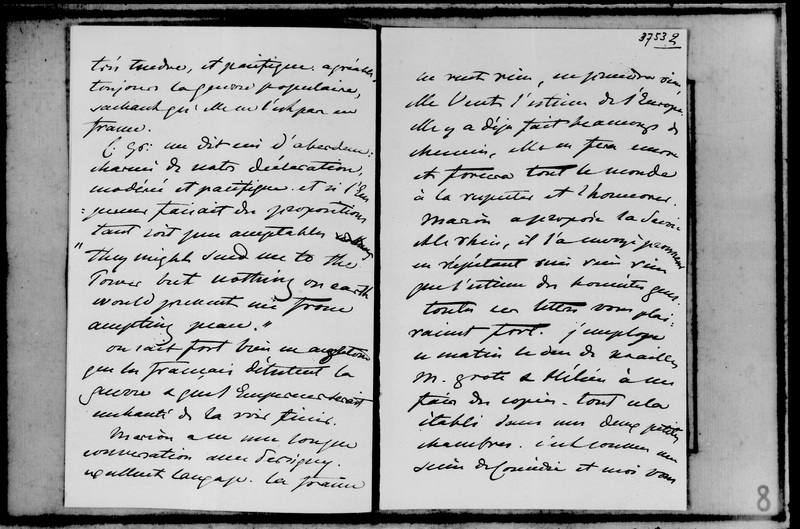 très tendre, et pacifique. agréable
toujours la guerre populaire,
sachant qu'elle ne l'est pas en
france.
C. Gr: me dit uni d'aberdeen:
charmé de notre déclaration,
modérée et pacifique. et si l'Em
=pereur faisait des propositions
tant soit peu acceptables
"they might send me to the
Tower but nothing on earth
would prevent me from
accepting peace."
on sait fort bien en angleterre
que les français détestent la
guerre & que l'Empereur serait
enchanté de la voir finir.
Marion a eu une longue
conversation avec Persigny.
excellent langage. la france
37532
ne veut rien, ne prendra rien,
elle veut l'estime de l'Europe.
elle y a déjà fait beaucoup de
chemin, elle en fera encore
et forcera tout le monde
à la respecter et l'honorer.
Marion a proposé la Savoie
et le rhin, il l'a envoyé promener
en répétant rien rien rien
que l'estime des honnêtes gens.
toutes ces lettres vous plai-
raient fort. j'employe
ce matin le duc de noailles
M. grote & Hélène à me
faire des copies. tout cela
établi dans mes deux petites
chambres. c'est comme une
scène de Comédie et moi vous
8